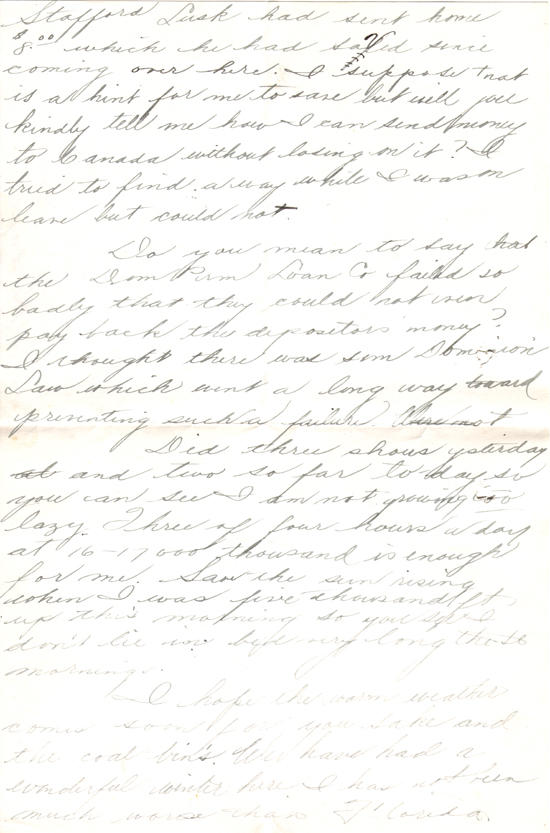 Stafford Lusk had sent home
$8.00 which he had saved since
coming over here. I suppose that
is a hint for me to save but will you
kindly tell me how I can send money
to Canada without losing on it? I
tried to find a way while I was on
leave but could not.
Do you mean to say that
the Dom Perm Loan Co failed so
badly that they could not even
pay back the depositors money?
I thought there was som Dominion
Law which went a long way toward
preventing such a failure. Was not
Did three shows yesterday
and two so far to day so
you can see I am not growing too
lazy. Three of four hours a day
at 16-17000 thousand is enough
for me. Saw the sun rising
when I was five thousand ft
up this morning so you see I
don't lie in bed very long those
mornings.
I hope the warm weather
comes soon for you sake and
the coal bin's. We have had a
wonderful winter here I has not been
much worse than Florida.